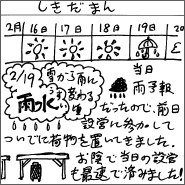 しきだまん
2月 16 17 18 19 20
2/19 雪から雨に
変わる
雨水
当日
雨予報
だったので、前日
設営に参加して
ついでに荷物を置いてきました。
お陰で当日の設営
も最速で済みました!